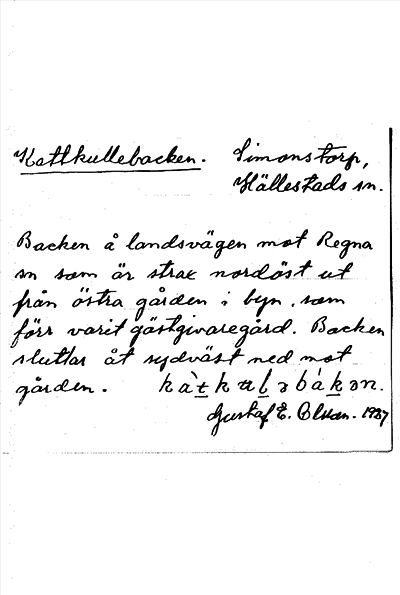 Kattkullebacken. Simonstorp,
Hällestads sn.
Backen å landsvägen mot Regna
sn som är strax nordöst ut
från östra gården i byn, som
förr varit gästgivaregård. Backen
sluttar åt sydväst ned mot
gården. kàtkulǝbákǝn.
Gustaf E. Olsson. 1927